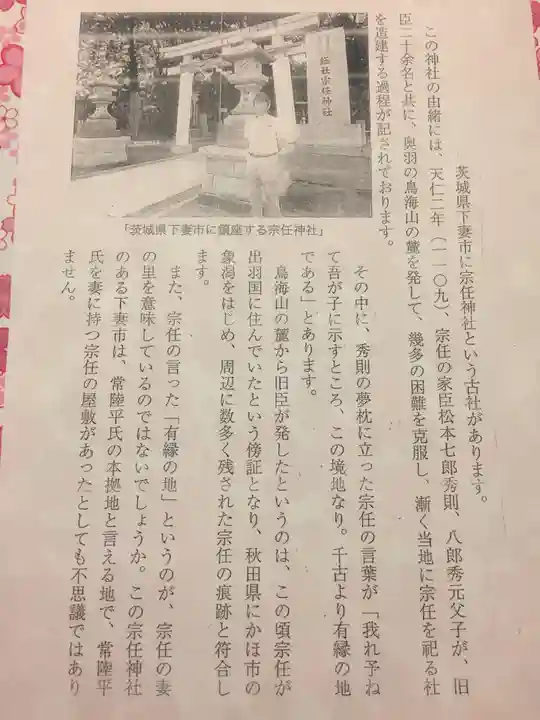 茨城県下妻市に宗任神社という古社があります。
この神社の由緒には、天仁二年（一一〇九）、宗任の家臣松本七郎秀則、八郎秀元父子が、旧
臣二十余名と共に、奥羽の鳥海山の麓を発して、幾多の困難を克服し、漸く当地に宗任を祀る社
を造建する過程が記されております。
総社宗任神社
「茨城県下妻市に鎮座する宗任神社」
その中に、秀則の夢枕に立った宗任の言葉が「我れ予ね
て吾が子に示すところ、この境地なり。千古より有縁の地
である」とあります。
鳥海山の麓から旧臣が発したというのは、この頃宗任が
出羽国に住んでいたという傍証となり、秋田県にかほ市の
象潟をはじめ、周辺に数多く残された宗任の痕跡と符合し
ます。
また、宗任の言った「有縁の地」というのが、宗任の妻
の里を意味しているのではないでしょうか。この宗任神社
のある下妻市は、常陸平氏の本拠地と言える地で、常陸平
氏を妻に持つ宗任の屋敷があったとしても不思議ではあり
ません。